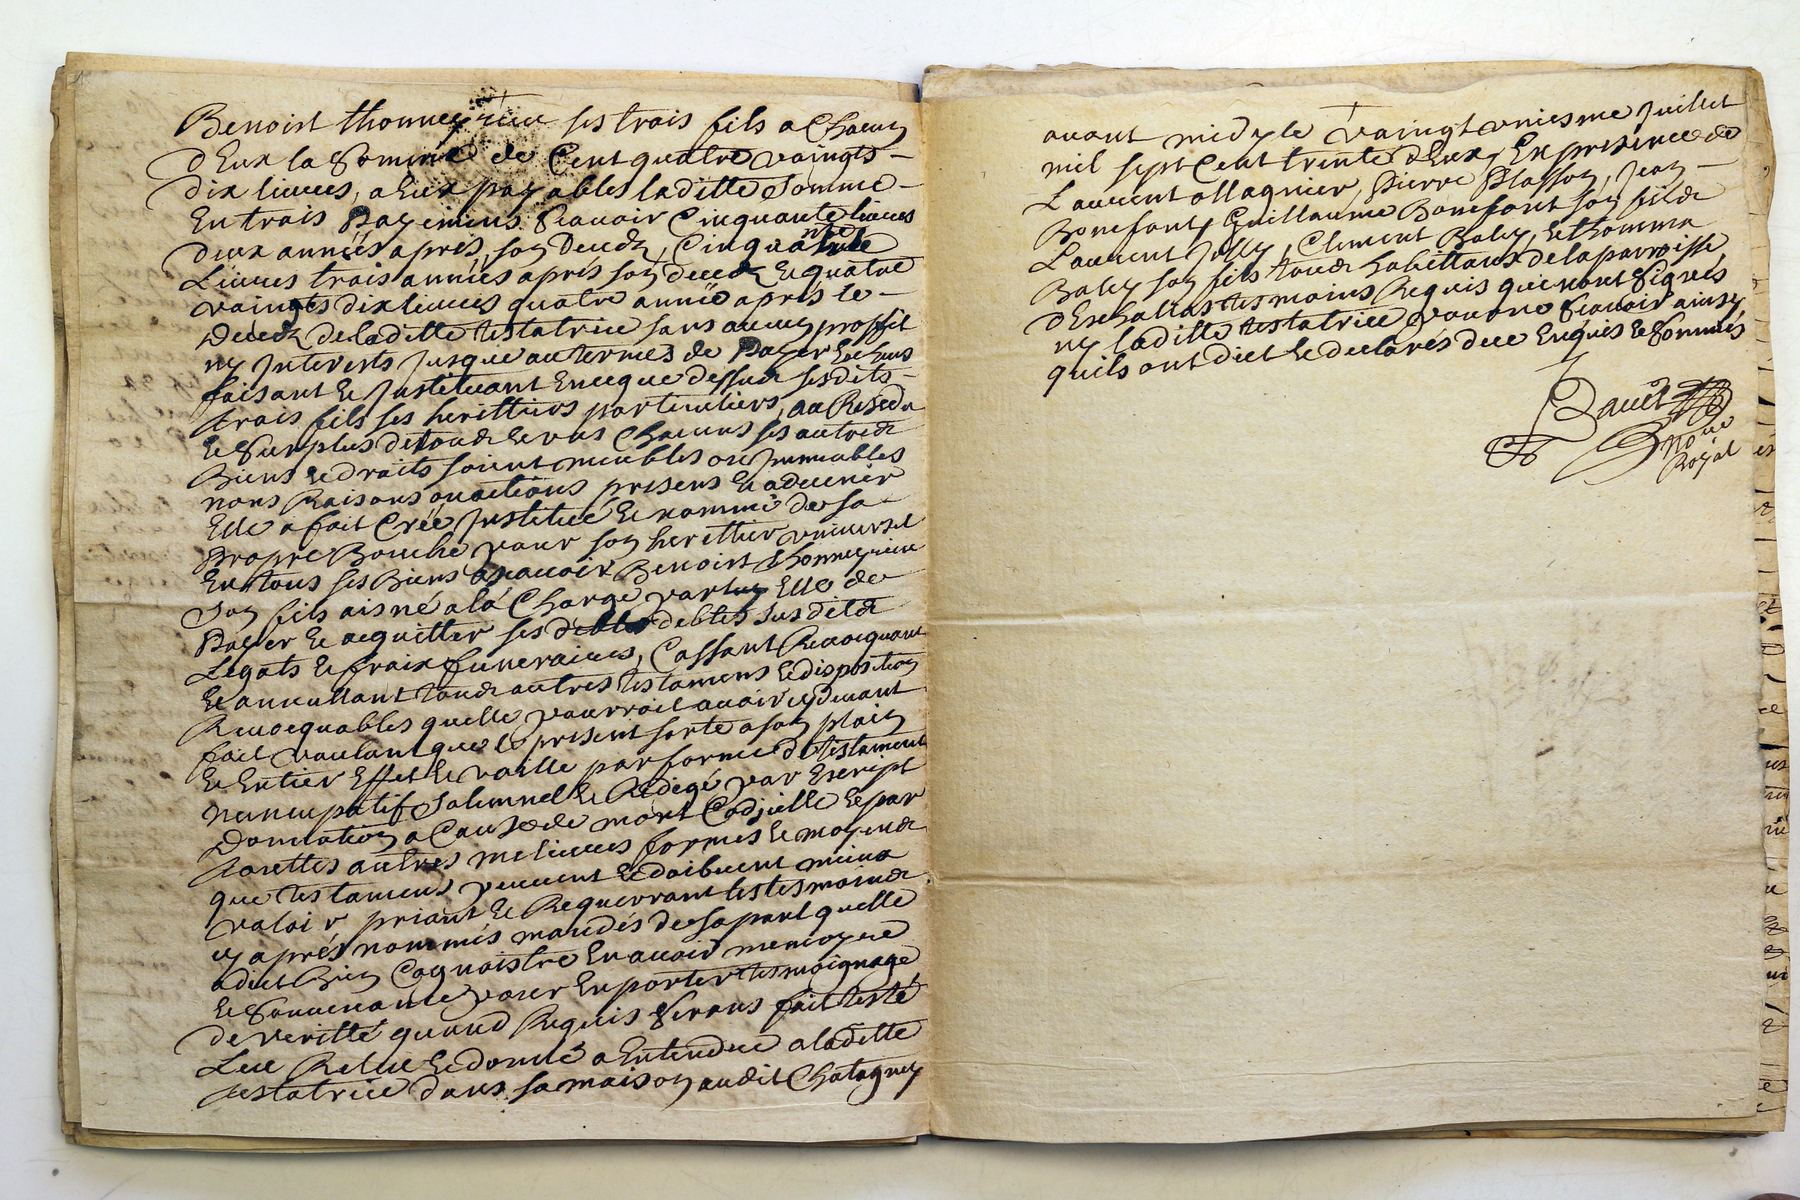 Benoist thonneyrieu ses trois fils a Chacun
d Eux la Somme de Cent quatre vaingts
dix livres, a Eux payables laditte Somme
En trois Payemens Scavoir Cinquante livres
deux années apres son Decedz, Cinquante
Livres trois années apres son decedz Et quatre
vaingts dix livres quatre année apres le
Decedz de laditte testatrice sans aucun proffit
ny Interests Jusque au termes de Payer Escheus
faisant Et Justituant En ce que dessus sesdits
trois fils ses herittiers particuliers, au Residu
Et Surplus de tous Et uns Chacuns ses autres
Biens Et droits soient meubles ou Jmmeubles
noms Raisons ou actions presens Et advenir
Elle a fait Créé Justitué Et nommé de sa
Propre Bouche pour son herittier universel
En tous ses Biens ascavoir Benoist thonneyrieu
Son fils aisné a la Charge par luy Elle de
Payer Et acquitter ses debtes susdits
Legats Et fraix funeraires, Cassant Revocquant
Et annullant tous autres testamens Et disposition
Revocquables quelle pourroit avoir cy devant
fait voulant que le present sorte a son plain
Et Entier Effet Et vaille par forme de testament
nuncupatif Solemnel Et Redigé par Escript
Donnation a Cause de mort Codjcille Et par
touttes autres melieures formes Et moyens
que testamens peuvent Et doibvent mieux
valoir priant Et Requerrant les tesmoins
cy aprés nommés mandés de sa part quelle
a dict Bien Cognoistre En avoir memoyre
Et Souvenance pour En porter tesmoignage
de veritté quand Requis Seront fait testé
Leu Releu Et donné a Entendre a laditte
testatrice dans sa maison audit Chatagny
avant midy le vaingt uniesme Juillet
mil sept Cent trente dEux, En presence de
Laurent ollagnier, Pierre Plasson, Jean
Bonefont, Guillaume Bonefont son fils
Laurent Jolly, Clement Baley, Et thomma
Baley son fils tous habittans de la parroisse
dEschallas tesmoins Requis qui nont Signés
ny laditte testatrice pour ne scavoir ainsy
quils ont dict Et declarés de ce Enquis Et Sommés
nore
Royal